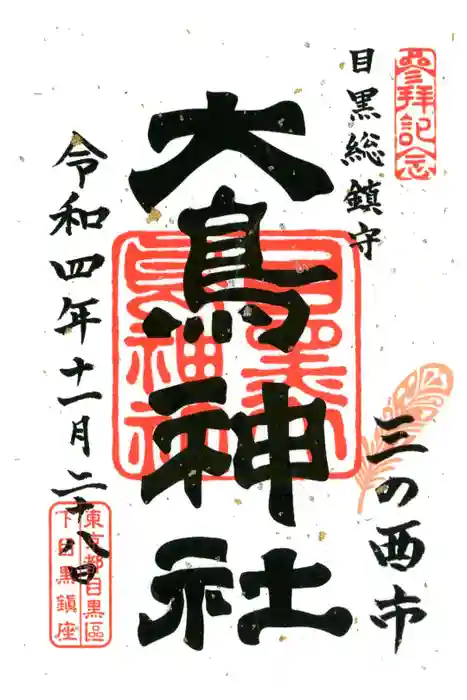 參拜記念
目黒総鎮守
三の酉市
大鳥神社
目黒大鳥神社
令和四年十一月二十八日
東京都目黒區
下目黒鎮座